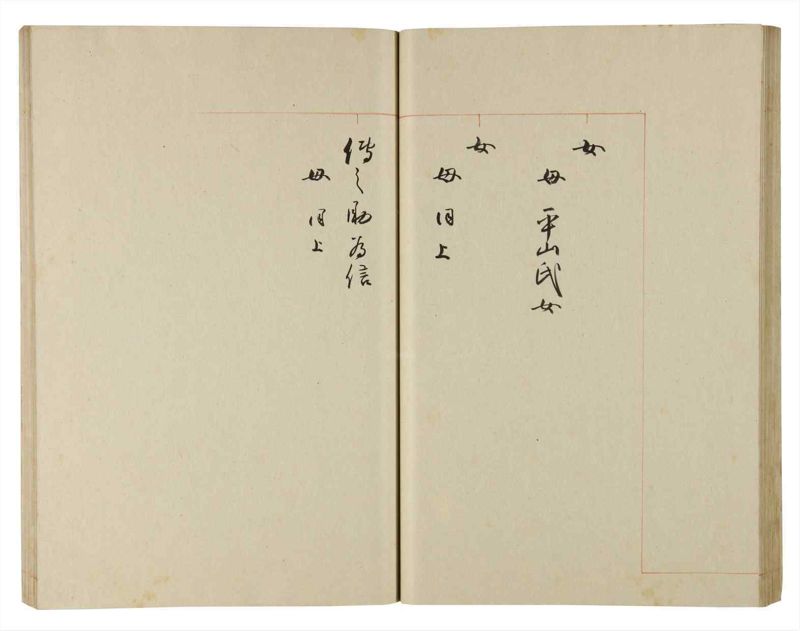 女
母 平山氏女
女
母 同上
傳之助為信
母 同上